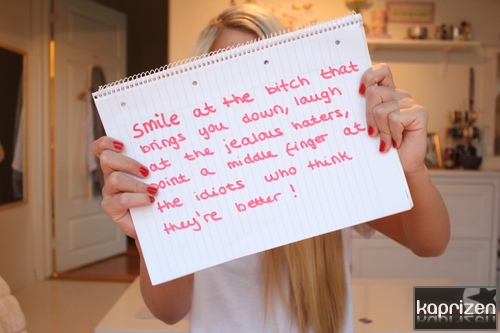 Smile at the bitch that
brings you down, laugh
at the jealous haters,
point a middle finger at
the idiots who think
they're better!
kaprizen